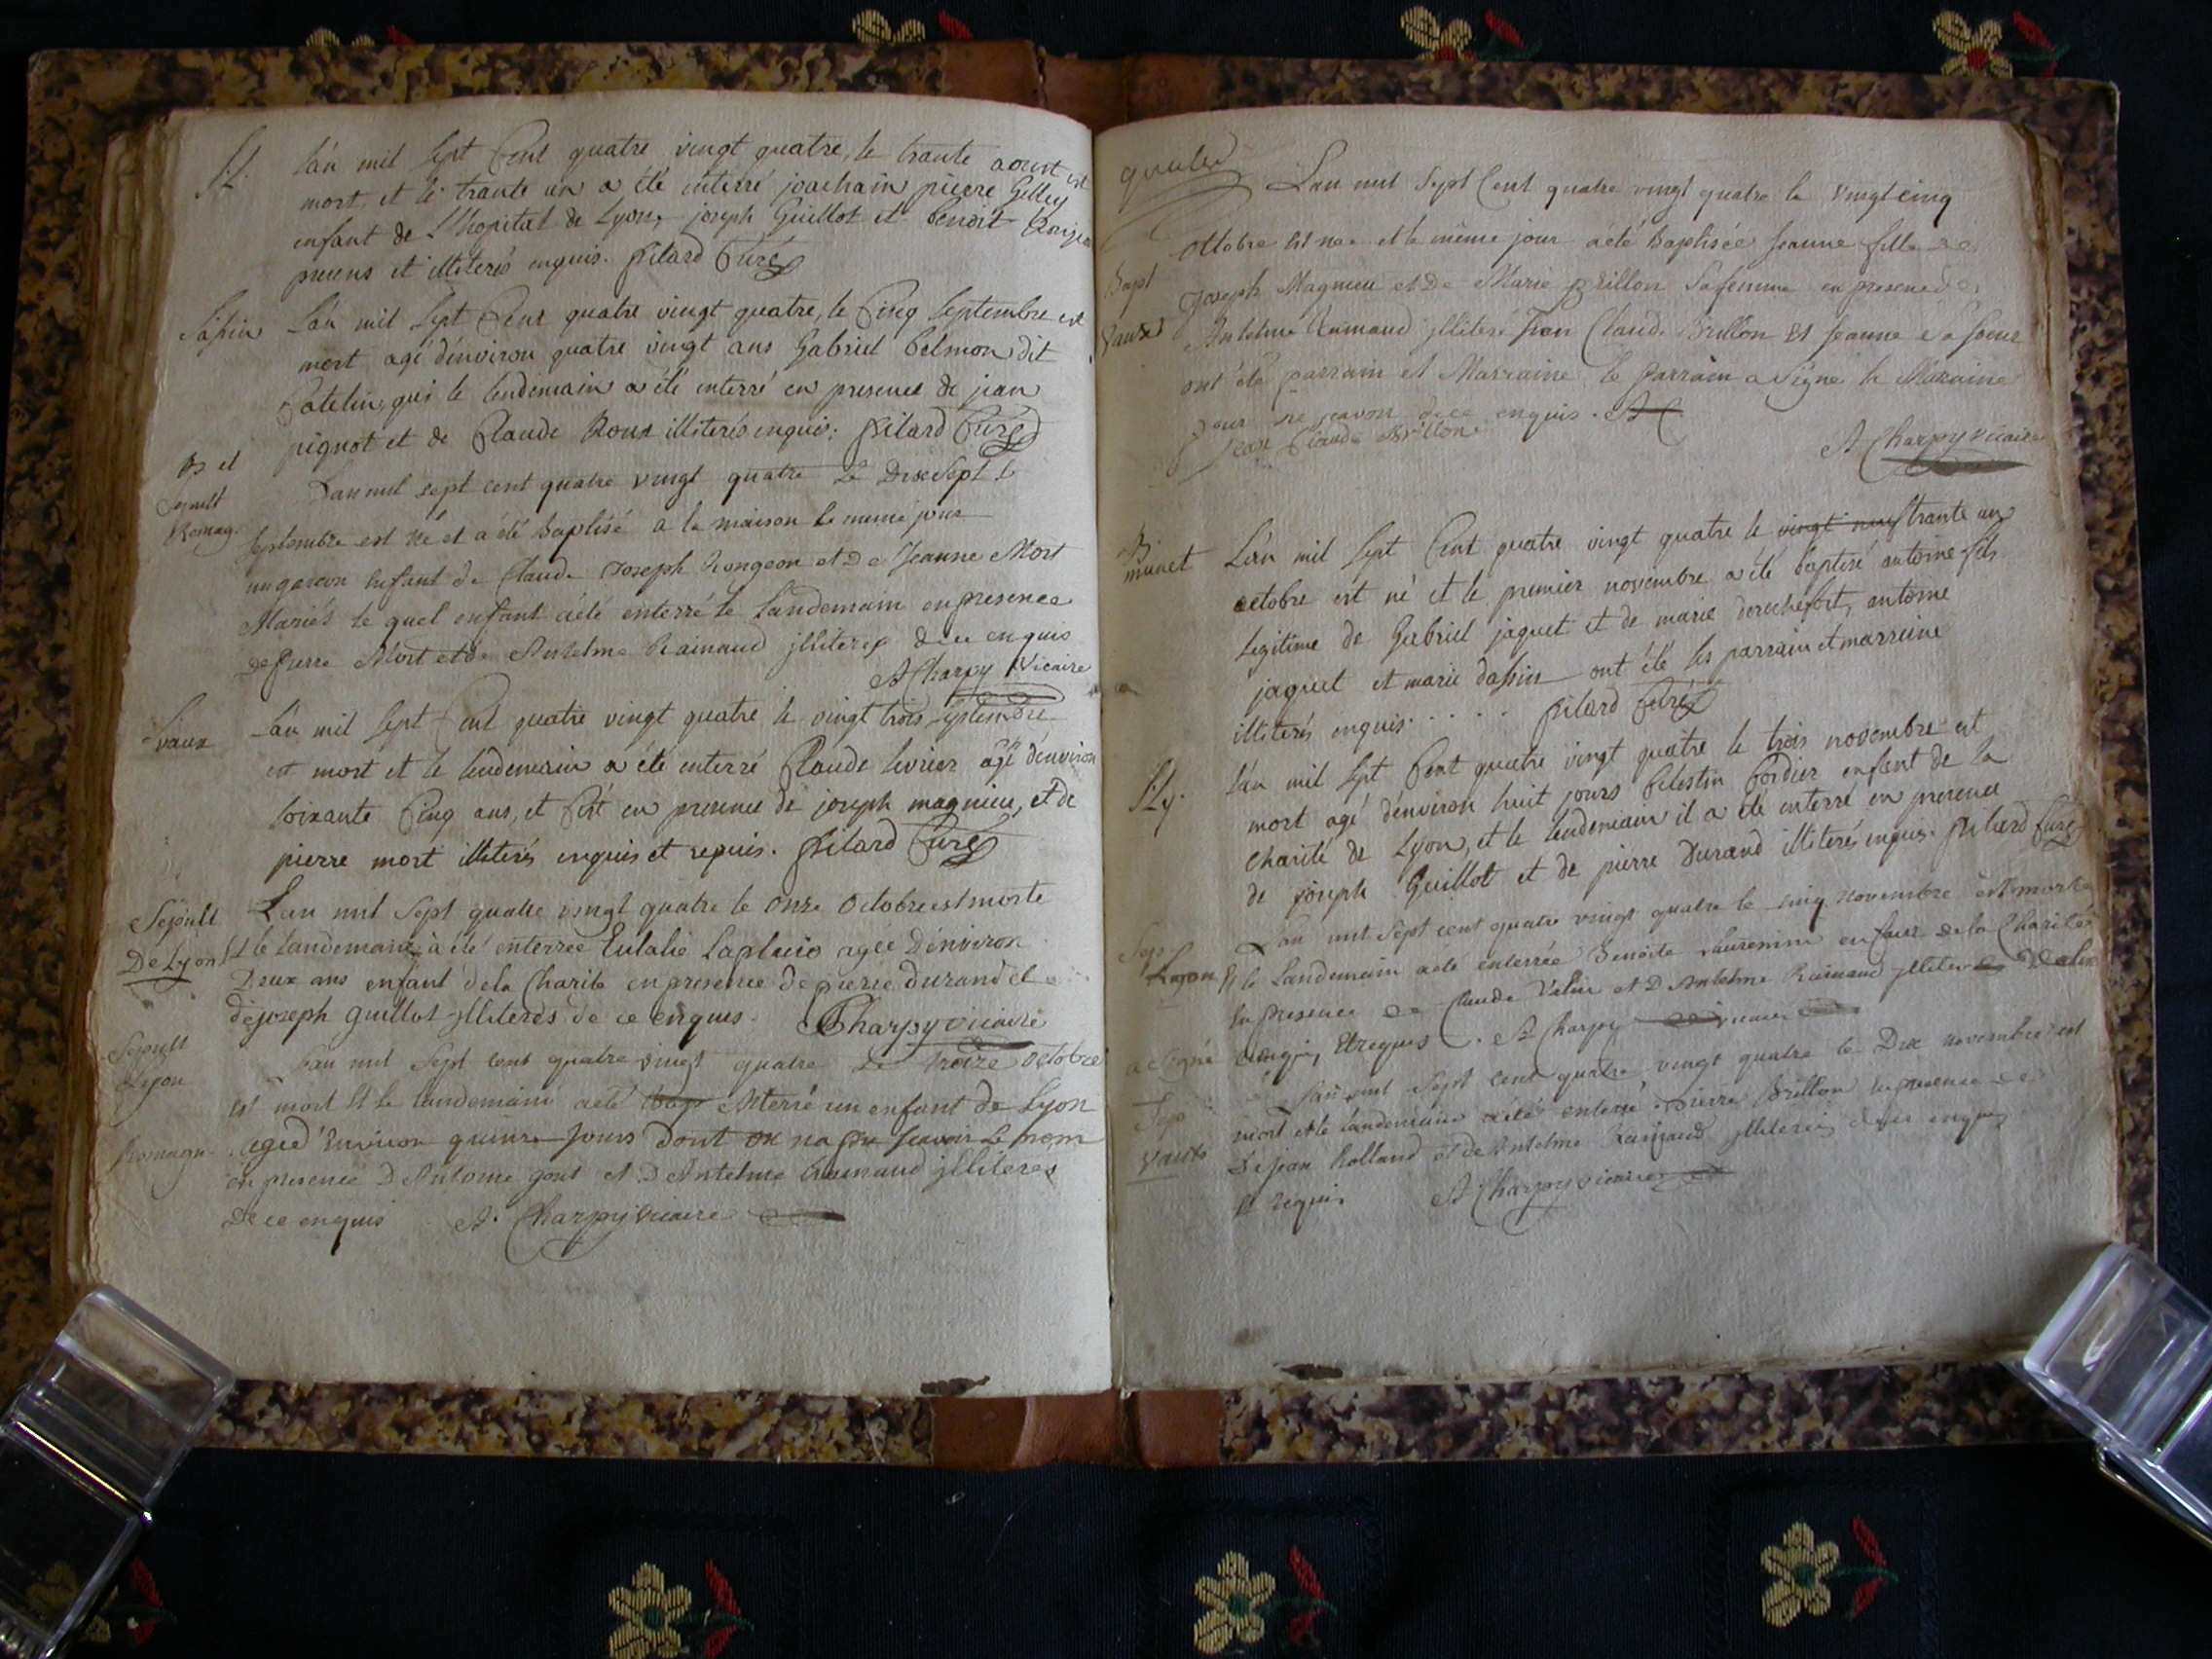 S. L. L'an mil sept Cent quatre vingt quatre, le trante aoust est
mort, et le trante un a été enterré joachain pierre Gelley
enfant de L'hopital de Lyon, joseph Guillot et benoit
presens et illiterés enquis. Pilard Curé
Sapin L'an mil sept Cent quatre vingt quatre, le Cinq septembre est
mort agé d'environ quatre vingt ans Gabriel belmon dit
Patelin, qui le lendemain a été enterré en presence de jean
pignot et de Claude Roux illiterés enquis. Pilard Curé
B et
Sepult
Romag. L'an mil sept cent quatre vingt quatre Le Dixsept
septembre est né et a été Baptisé a la maison le meme jour
un garcon enfant de Claude Joseph Rongeon et De Jeanne Mort
Mariés le quel enfant aété enterré le Landemain en presence
de pierre Mort et de Antelme Rainaud jlliterés de ce enquis
A Charpy Vicaire
S. vaux L'an mil sept Cent quatre vingt quatre le vingt trois septembre
est mort et le lendemain a été enterré Claude livrier agé d'environ
soixante Cinq ans, et Cest en presence de joseph magnieu, et de
pierre mort illiterés enquis et requis. Pilard Curé
Sepult L'an mil sept quatre vingt quatre le onze Octobre est morte
De Lyon Et le landemain a été enterrée Eulalie agée D'environ
Deux ans enfant dela Charité en presence de pierre durand et
de joseph guillot jlliterés de ce enquis. Charpy vicaire
Sepult
Lyon L'an mil sept cent quatre vingt quatre Le Treize octobre
est mort Et le landemain aété enterré un enfant de Lyon
Romagn. agé d'Environ quinze jours Dont on na pu scavoir Le nom
en presence D'Antoine gout et D'Antelme Rainaud jlliteres
De ce enquis A. Charpy vicaire
L'an mil sept Cent quatre vingt quatre le vingt cinq
Ottobre Est née et le même jour aété Baptisée Jeanne fille de
Bapt Joseph Magnieu et De Marie Brillon Sa femme en presence de
Vaux Antelme Rainaud jlliteré Jean Claude Brillon Et Jeanne sa soeur
ont été parrain et Marraine, le parrain a signé la Maraine
pour ne scavoir de ce enquis.
Jean Claude Brillon
A Charpy vicaire
B.
munet L'an mil sept Cent quatre vingt quatre le vingt neuf trante un
octobre est né et le premier novembre a été baptisé antoine fils
legitime de Gabriel jaquet et de marie derochefort, antoine
jaquet et marie dassin ont été les parrain et marraine
illiterés enquis. . . . . Pilard Curé
S. Ly. L'an mil sept Cent quatre vingt quatre le trois novembre est
mort agé d'environ huit jours Celestin Cordier enfant de la
charité de Lyon, et le lendemain il a été enterré en presence
de joseph Guillot et de pierre Durand illiterés enquis. Pilard Curé
Sep. L'an mil sept cent quatre vingt quatre le cinq novembre est morte
Lyon Et le Landemain aété enterrée Benoite enfant dela Charité
En presence de Claude Velin et D'Antelme Rainaud
a signé enquis Et requis. A Charpy vicaire
Sep L'an mil sept cent quatre vingt quatre le Dix novembre est
mort et le landemain aété enterré Pierre Brillon en presence de
Vaux De jean Rolland et de Antelme Rainaud jlliteres de ce enquis
Et requis A Charpy vicaire